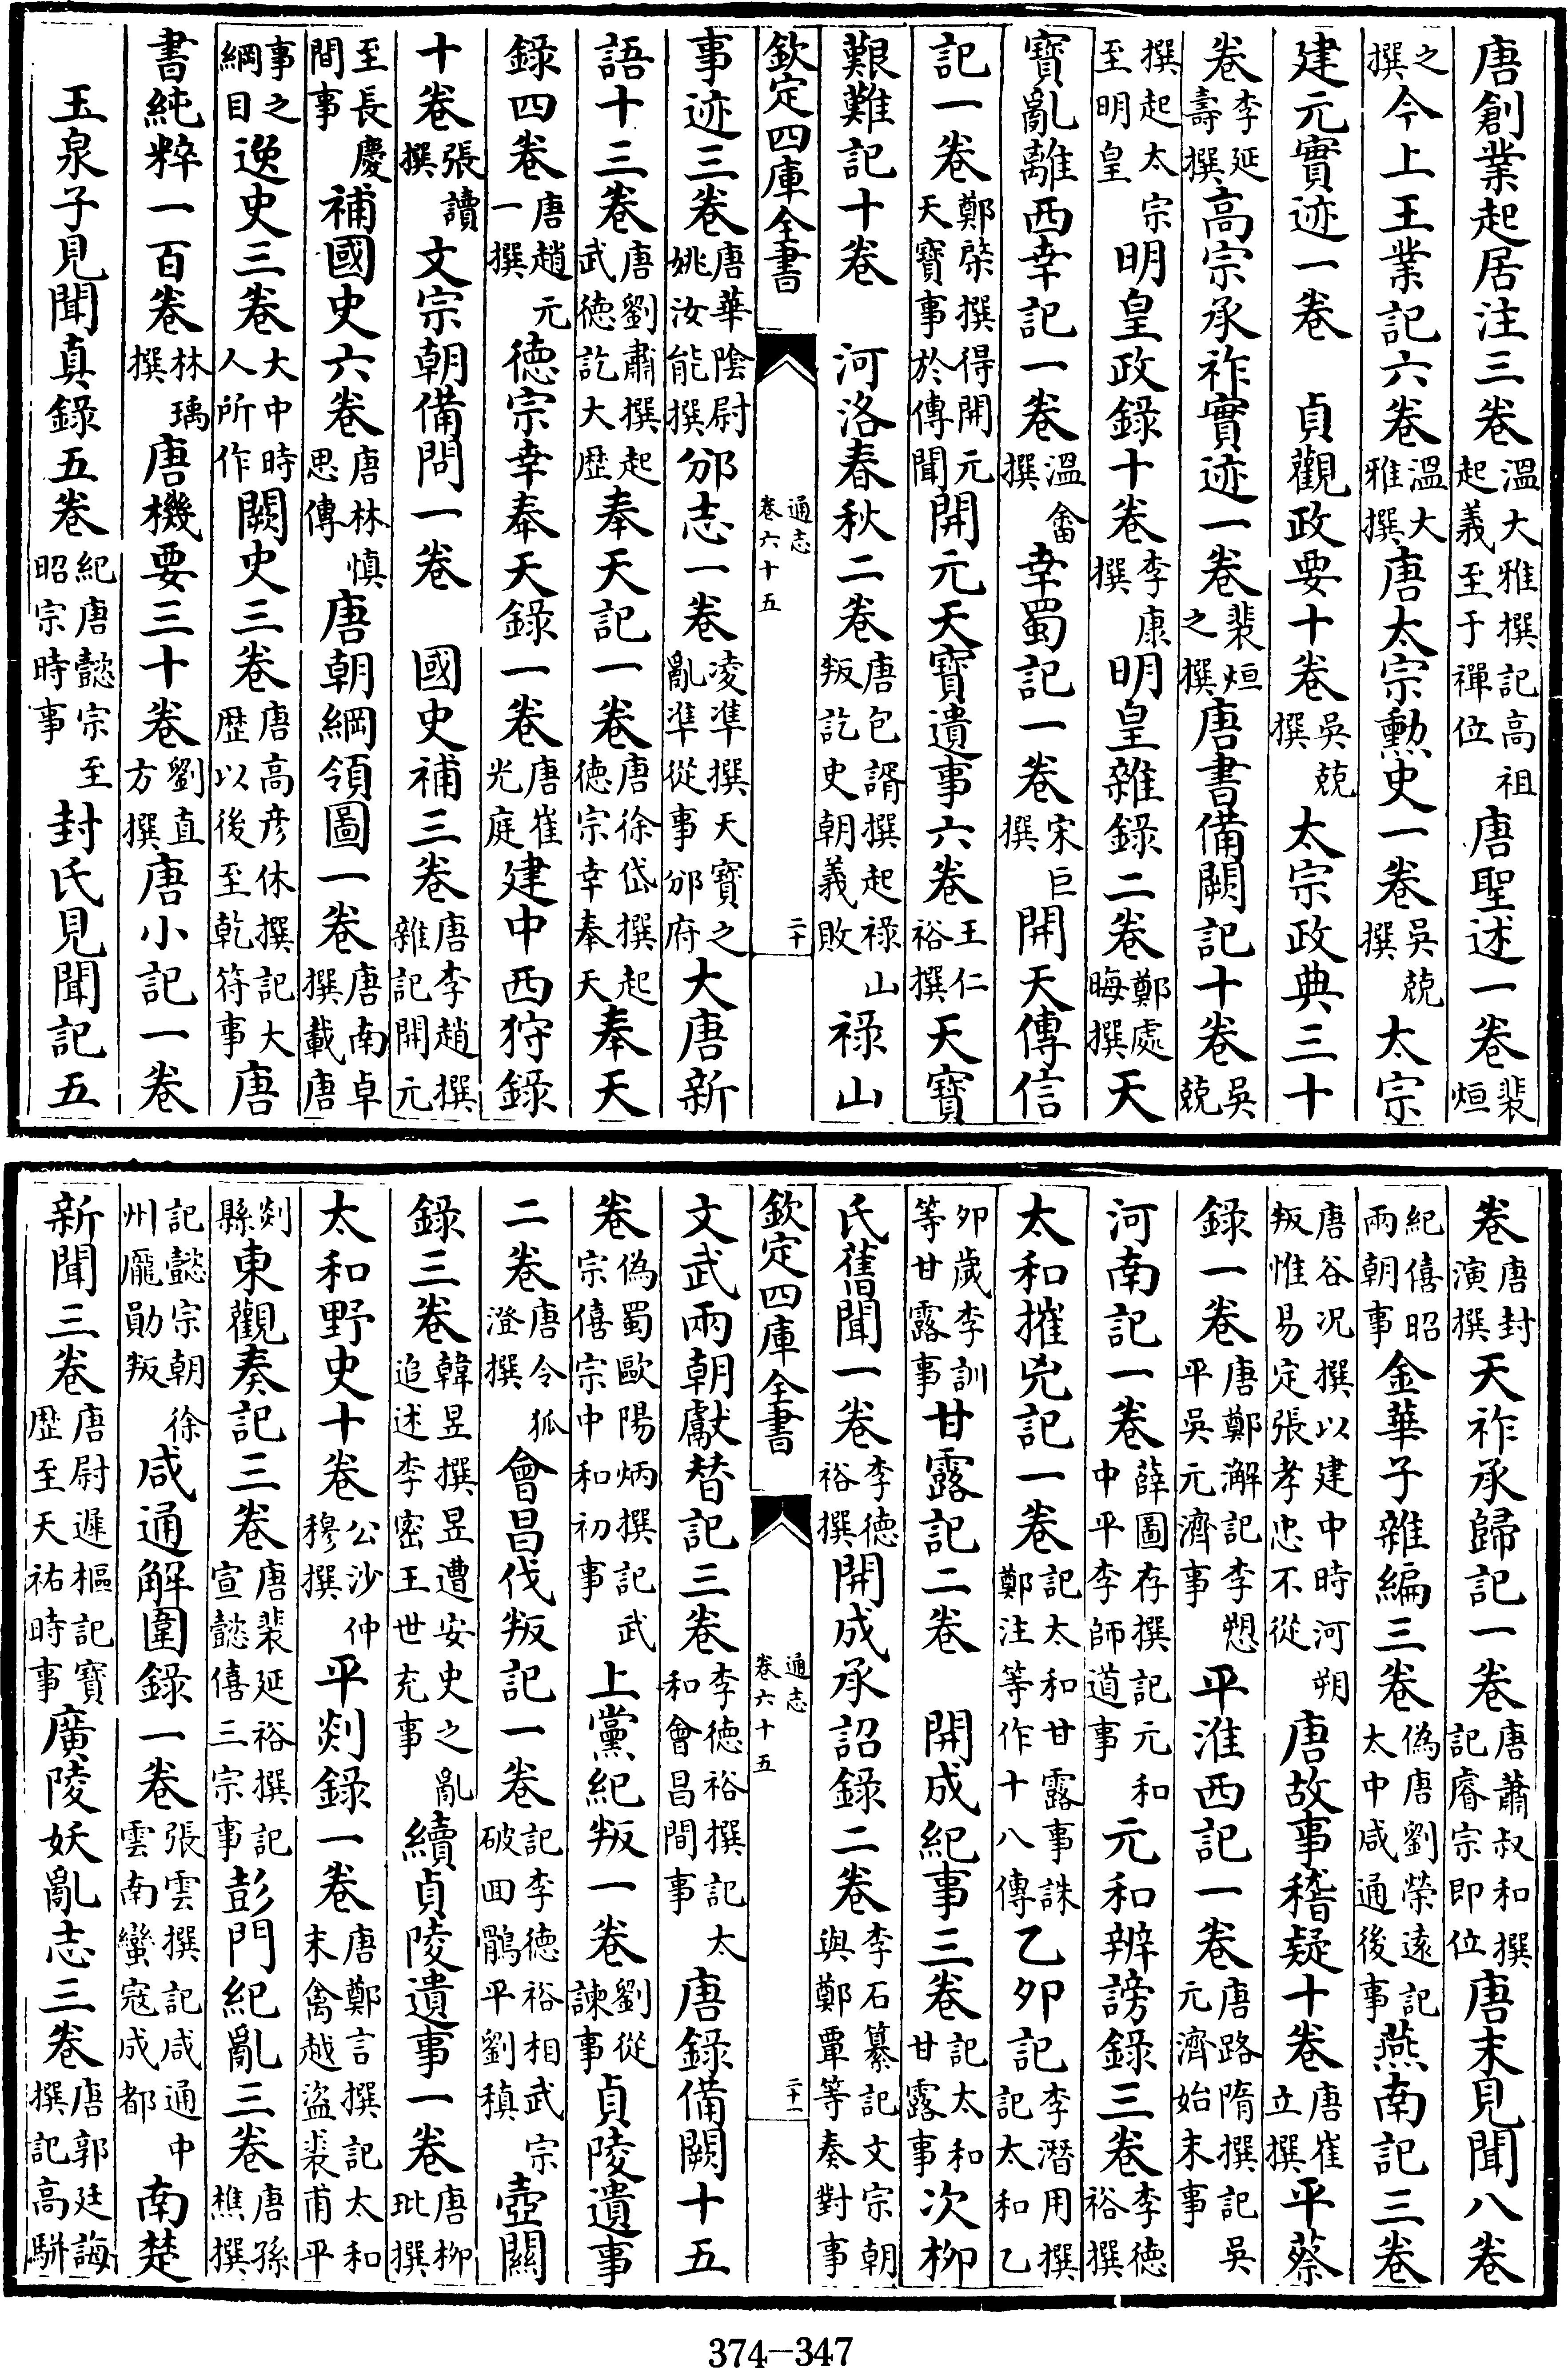 唐創業起居注三卷溫大雅撰記高祖起義至于禪位唐聖述一卷裴烜
之撰今上王業記六卷溫大雅撰唐太宗勲史一卷吳兢撰太宗
建元實迹一卷貞觀政要十卷吳兢撰太宗政典三十
卷李延壽撰高宗承祚實迹一卷裴烜之撰唐書備闕記十卷吳兢
撰起太宗至明皇明皇政錄十卷李康撰明皇雜錄二卷鄭處晦撰天
寶亂離西幸記一卷溫畬撰幸蜀記一卷宋巨撰開天傳信
記一卷鄭棨撰得開元天寶事於傳聞開元天寶遺事六卷王仁裕撰天寶
艱難記十卷河洛春秋二卷唐包諝撰起祿山叛訖史朝義敗祿山
欽定四庫全書 通志卷六十五 二十
事迹三卷唐華陰尉姚汝能撰邠志一卷凌凖撰天寶之亂凖從事邠府大唐新
語十三卷唐劉肅撰起武徳訖大歴奉天記一卷唐徐岱撰起徳宗幸奉天奉天
錄四卷唐趙元一撰徳宗幸奉天錄一卷唐崔光庭建中西狩錄
十卷張讀撰文宗朝備問一卷國史補三卷唐李趙撰雜記開元
至長慶間事補國史六卷唐林慎思傳唐朝綱領圖一卷唐南卓撰載唐
事之綱目逸史三卷大中時人所作闕史三卷唐高彦休撰記大歴以後至乾符事唐
書純粹一百卷林瑀撰唐機要三十卷劉直方撰唐小記一卷
玉泉子見聞真錄五卷紀唐懿宗至昭宗時事封氏見聞記五
卷唐封演撰天祚承歸記一卷唐蕭叔和撰記睿宗即位唐末見聞八卷
紀僖昭兩朝事金華子雜編三卷偽唐劉榮遠記太中咸通後事燕南記三卷
唐谷况撰以建中時河朔叛惟易定張孝忠不從唐故事稽疑十卷唐崔立撰平蔡
錄一卷唐鄭澥記李愬平吳元濟事平淮西記一卷唐路隋撰記吳元濟始末事
河南記一卷薛圖存撰記元和中平李師道事元和辨謗錄三卷李徳裕撰
太和摧兇記一卷記太和甘露事誅鄭注等作十八傳乙卯記李潛用撰記太和乙
卯歲李訓等甘露事甘露記二卷開成紀事三卷記太和甘露事次柳
氏舊聞一卷李徳裕撰開成承詔錄二卷李石纂記文宗朝與鄭覃等奏對事
欽定四庫全書 通志卷六十五 二十一
文武兩朝獻替記三卷李徳裕撰記太和會昌間事唐錄備闕十五
卷偽蜀歐陽炳撰記武宗僖宗中和初事上黨紀叛一卷劉從諫事貞陵遺事
二卷唐令狐澄撰會昌伐叛記一卷記李徳裕相武宗破回鶻平劉稹壺關
錄三卷韓昱撰昱遭安史之亂追述李密王世充事續貞陵遺事一卷唐柳玭撰
太和野史十卷公沙仲穆撰平剡錄一卷唐鄭言撰記太和末禽越盜裘甫平
剡縣東觀奏記三卷唐裴延裕撰記宣懿僖三宗事彭門紀亂三卷唐孫樵撰
記懿宗朝徐州龎勛叛咸通解圍錄一卷張雲撰記咸通中雲南蠻寇成都南楚
新聞三卷唐尉遲樞記寶歴至天祐時事廣陵妖亂志三卷唐郭廷誨撰記高駢
374-347